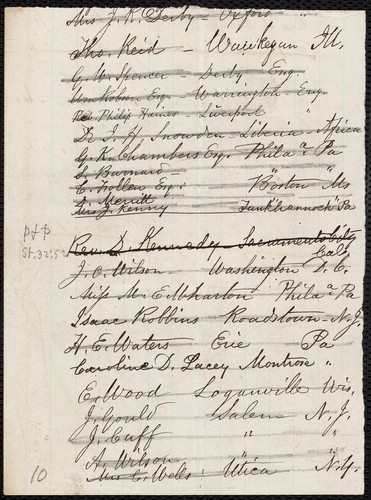 Mrs J. K. Derby - Oxford "
Tho. Reid - Waukegan Ill.
G. W. Spencer - Derby, Eng.
Wm Robson Esq - Warrington - Eng.
Rev. Philip Hains - Liverpool "
Dr J. H. Snowden - Liberia - Africa
G. K. Chambers Esq. Phila a Pa
S. Burnard - " "
C. Follen Esq: Boston Ms
A. Merritt
Mrs J. Kenny Tunkhannock Pa
p & p
St. 32; 52
Rev. D. Kennedy - Sacramento City
Cal.
J. O. Wilson - Washington D. C.
Miss M. E. Wharton Phila a Pa
Isaac Robbins Roadstown - N. J.
H. E. Waters Erie Pa
Caroline D. Lacey Montrose "
E. Wood Loganville Wis.
J. Gould Salem N. J.
J. Cuff " "
A. Wilson
Mrs C. Wells Utica N. Y.
10